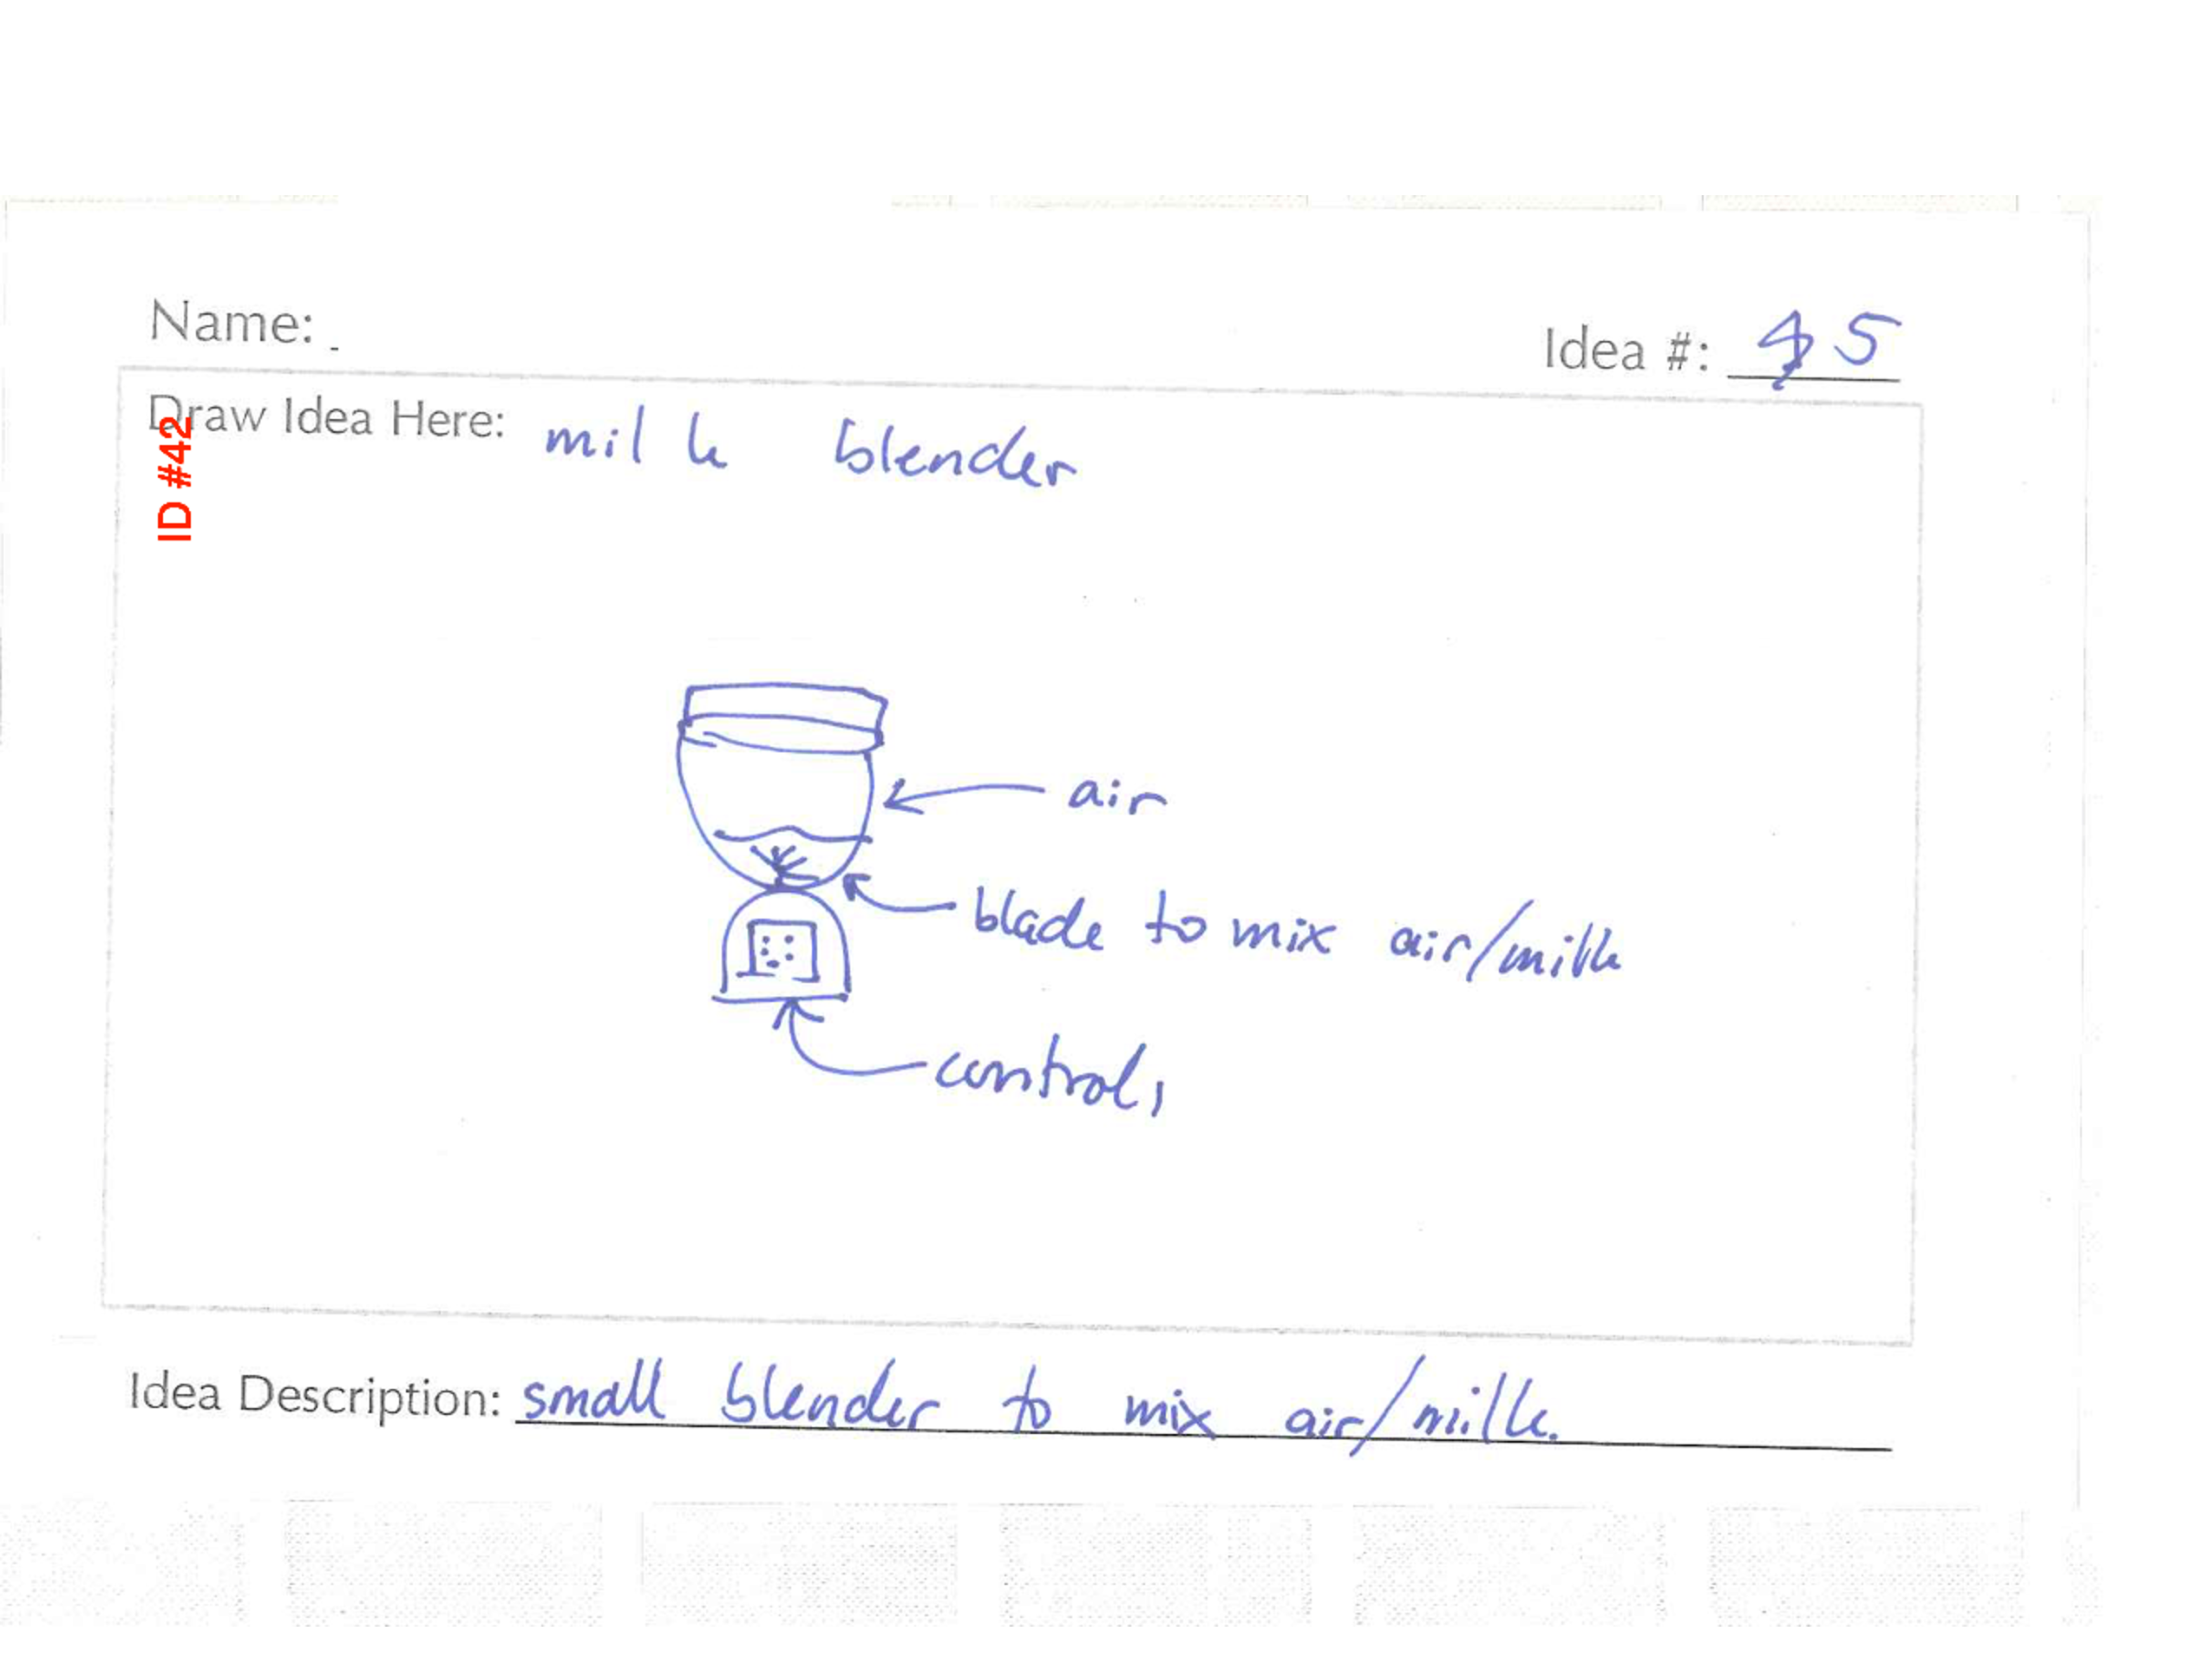 Name:
Idea #: 5
Draw Idea Here: milk blender
ID #42
air
blade to mix air/milk
controls
Idea Description: small blender to mix air/milk.